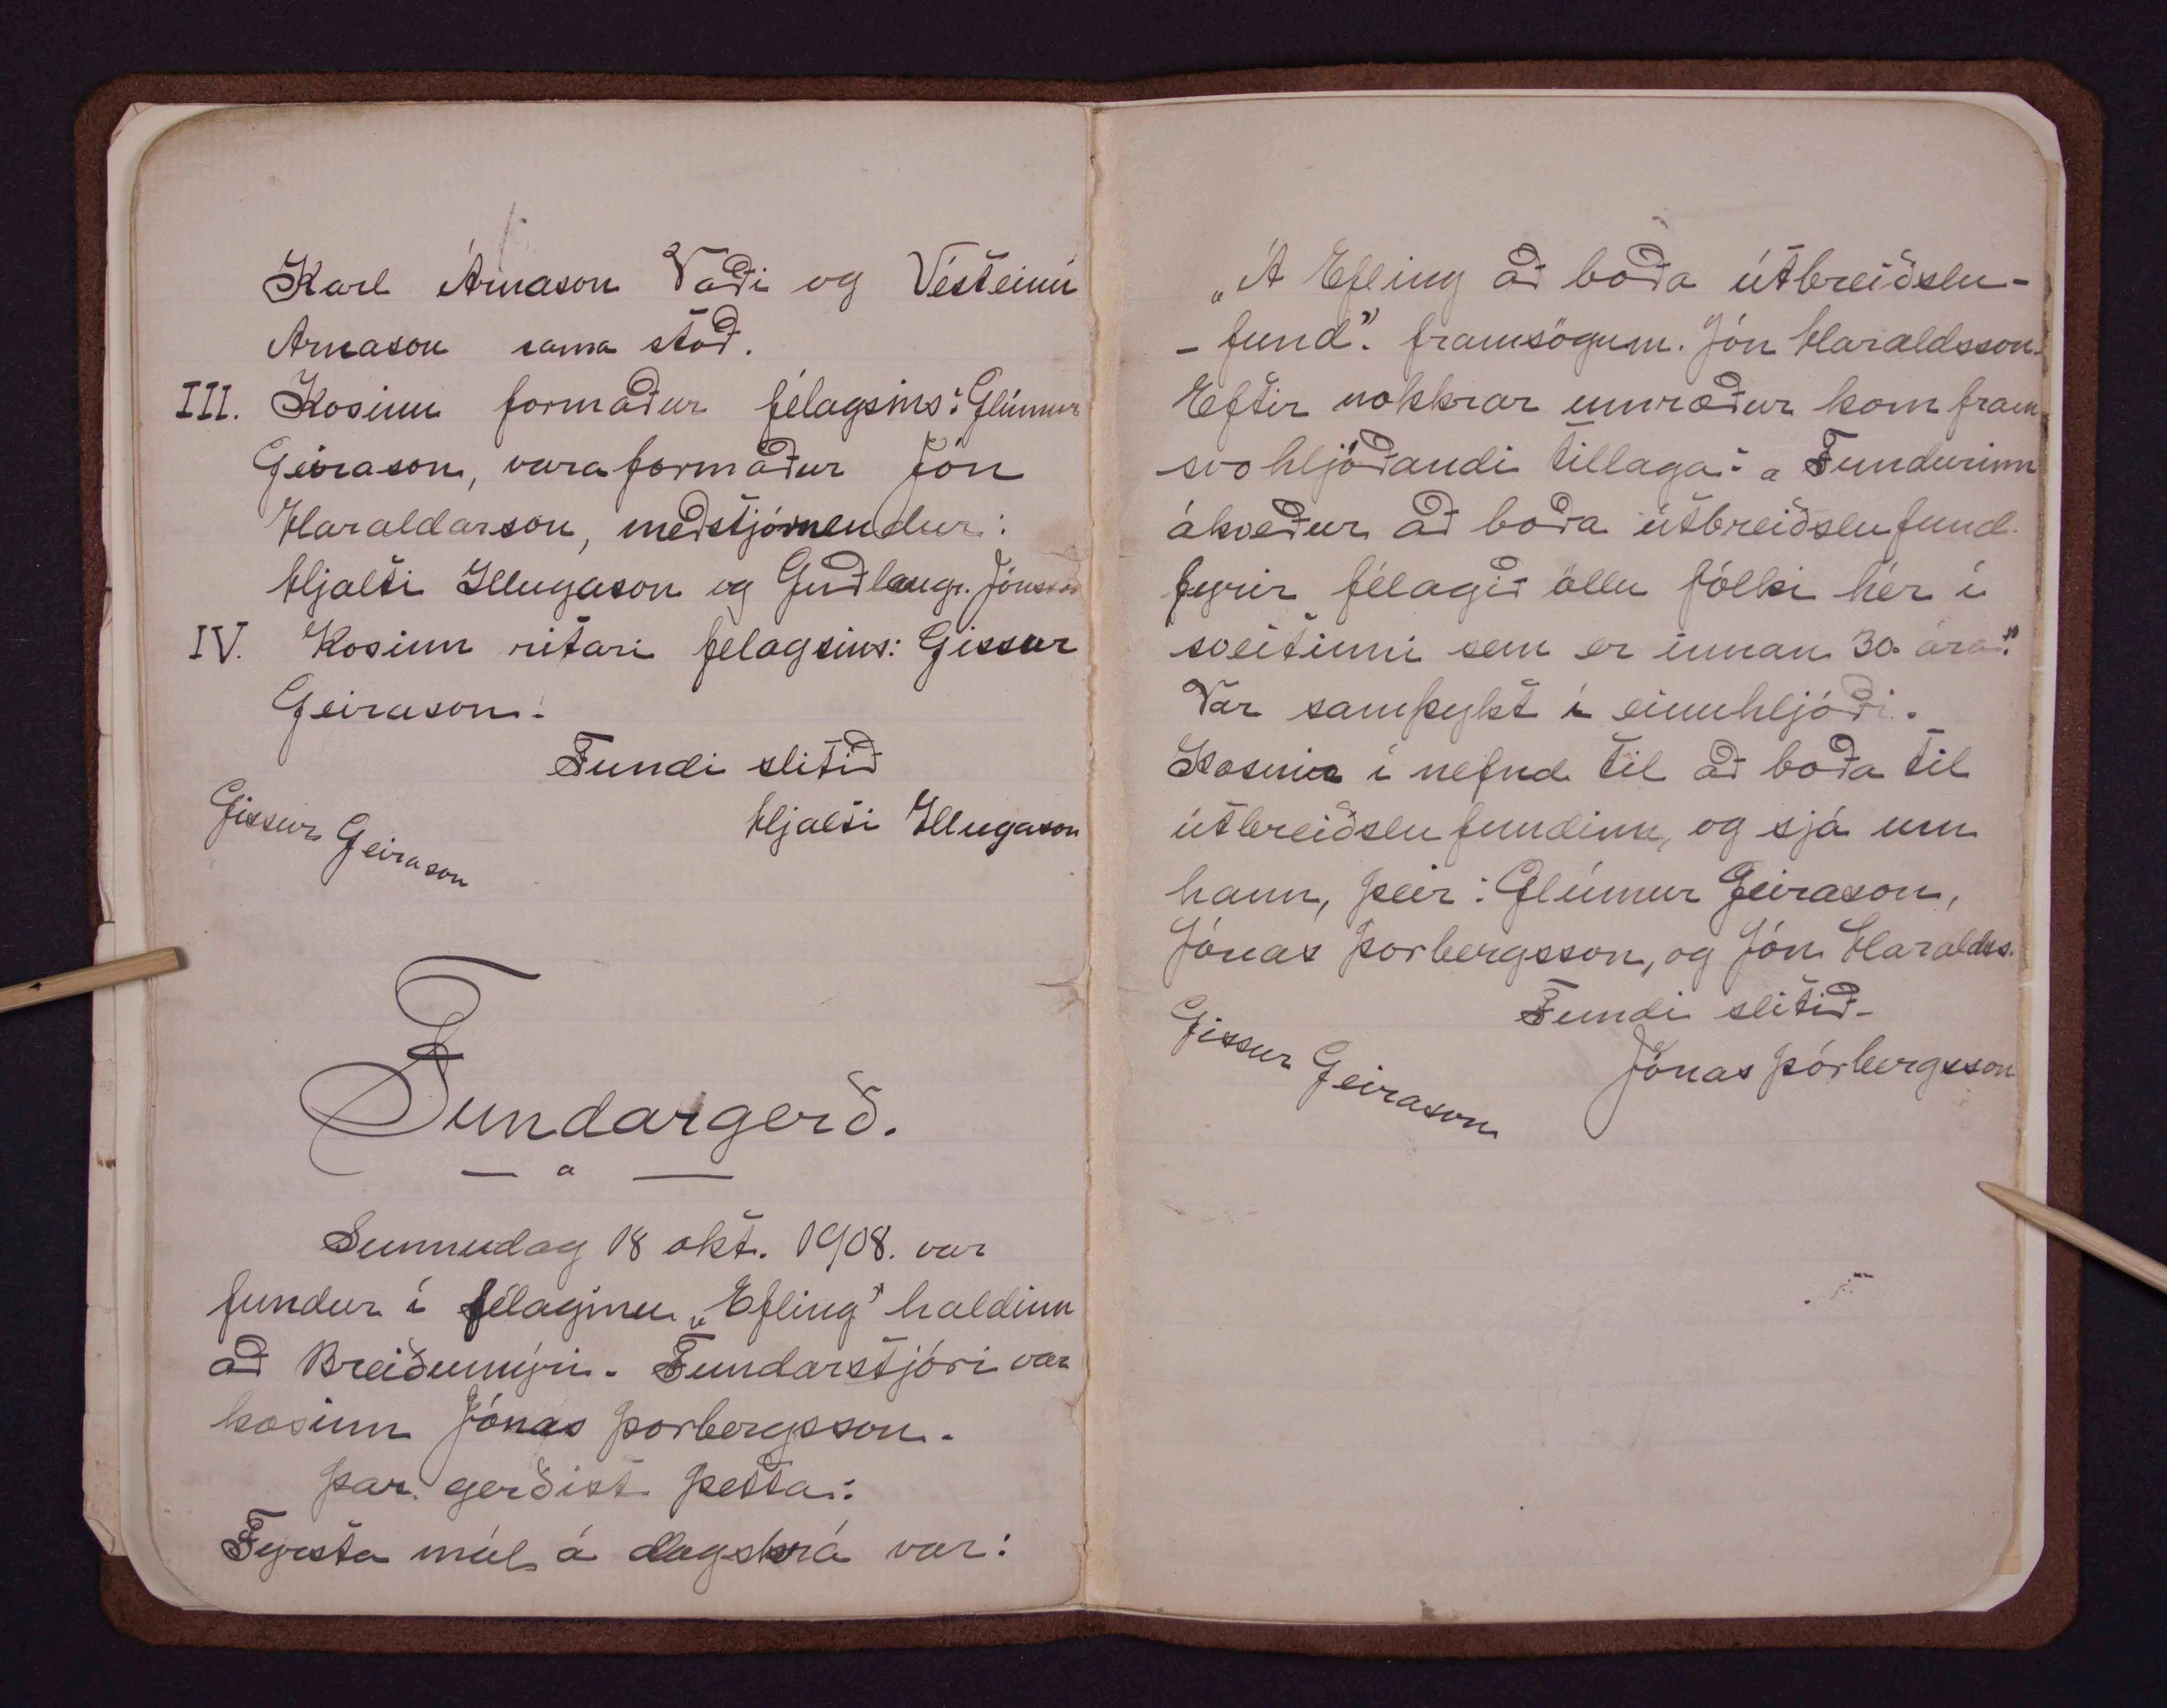 Karl Árnason Vaði og Vésteinn
Arnason sama stað.
III. Kosinn formaður félagsins: Glúmur
Geirason, varaformaður Jón
Haraldarson, meðstjórnendur:
Hjalti Illugason og Guðlaugr. Jónsson
IV. Kosinn ritari felagsins: Gissur
Geirason.
Fundi slitið
Hjalti Illugason
Gissur Geirason
Fundargerð.
Sunnudag 18 okt. 1908. var
fundur í félaginu „Efling" haldinn
að Breiðumýri. Fundarstjóri var
kosinn Jónas Þorbergsson.
Þar gerðist þetta:
Fyrsta mál á dagskrá var:
„Á Efling að boða útbreiðslu-
- fund". framsögum. Jón Haraldsson.
Eftir nokkrar umræður kom fram
svohljóðandi tillaga: „Fundurinn
ákveður að boða útbreiðslufund
fyrir félagið öllu fólki hér í
sveitinni sem er innan 30. ára".
Var samþykt í einuhljóði.
Kosnir í nefnd til að boða til
útbreiðslufundinn, og sjá um
hann, þeir: Glúmur Geirason,
Jónas Þorbergsson, og Jón Haraldss.
Fundi slitið-
Jónas Þórbergsson
Gissur Geirason